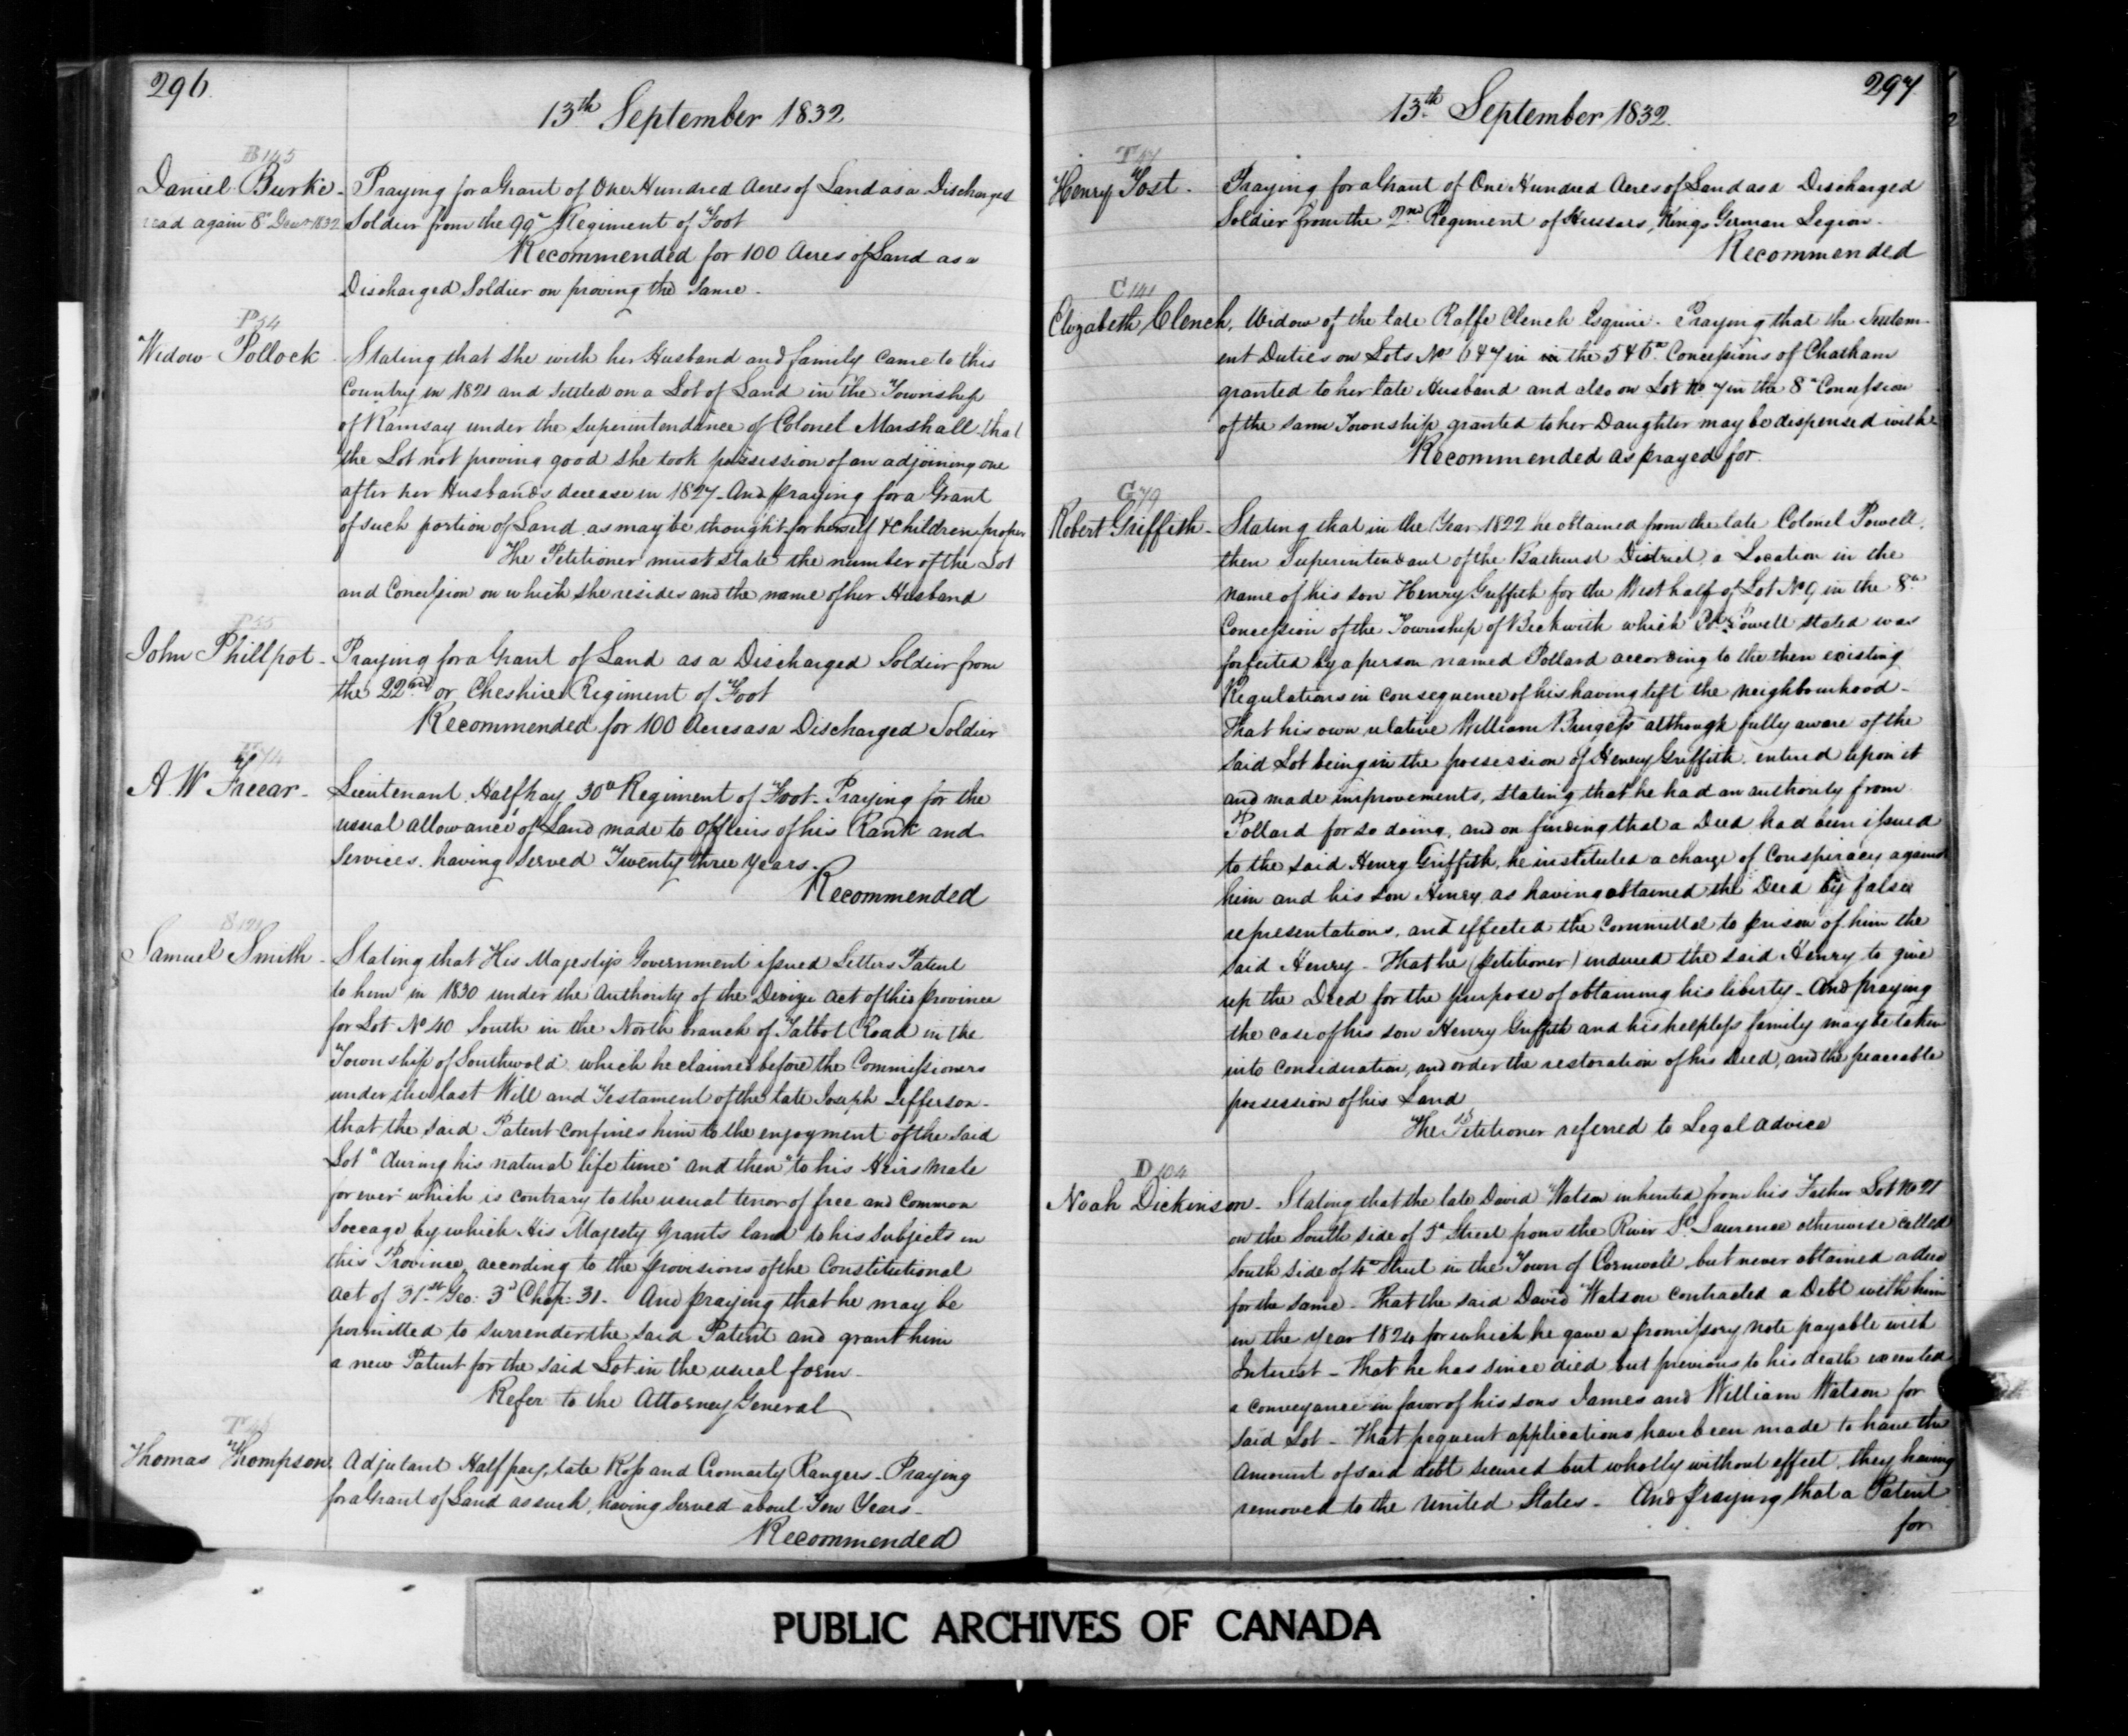 296
13th September 1832
B 145
Daniel Burke - Praying for a Grant of One Hundred Acres of Land as a Discharged
read again 8th Decr 1832 Soldier from the 99th Regiment of Foot
Recommended for 100 Acres of Land as a
Discharged Soldier on proving the same -
P 54
Widow Pollock Stating that she with her Husband and family came to this
Country in 1821 and settled on a Lot of Land in the Township
of Ramsay under the superintendance of Colonel Marshall - that
the Lot not proving good she took possession of an adjoining one
after her Husbands decease in 1827 - And praying for a Grant
of such portion of Land as may be thought for herself & Children proper
The Petitioner must state the number of the Lot
and Concession on which she resides and the name of her Husband
P 55
John Phillpot - Praying for a Grant of Land as a Discharged Soldier from
the 22nd or Cheshire Regiment of Foot
Recommended for 100 Acres as a Discharged Soldier
A. W Freear - Lieutenant Halfpay 30th Regiment of Foot - Praying for the
usual allowance of Land made to Officers of his Rank and
Services having served Twenty three years -
Recommended
S 121
Samuel Smith - Stating that His Majestys Government issued Letters Patent
to him in 1830 under the Authority of the Devizee Act of this province
for Lot No 40 South in the North branch of Talbot Road in the
Township of Southwold which he claimed before the Commissioners
under the last Will and Testament of the late Joseph Lefferson -
that the said Patent confines him to the enjoyment of the said
Lot "during his natural life time" and then "to his Heirs Male
for ever" which is contrary to the usual tenor of free and Common
Soccage by which His Majesty grants land to his Subjects in
this Province, according to the provisions of the Constitutional
Act of 31st Geo: 3d Chap: 31 - And praying that he may be
permitted to surrender the said Patent and grant him
a new Patent for the said Lot in the usual form -
Refer to the Attorney General
Thomas Thompson, Adjutant Half pay, late Ross and Cromarty Rangers - Praying
for a Grant of Land as such, having served about Ten Years -
Recommended
297
13th September 1832
T 47
Henry Tost - Praying for a Grant of One Hundred Acres of Land as a Discharged
Soldier from the 2nd Regiment of Hussars, Kings German Legion -
Recommended
C 141
Elizabeth Clench, Widow of the late Raffe Clench Esquire - Praying that the Settlem-
ent Duties on Lots Nos 6 & 7 in in the 5 & 6th Concessions of Chatham
granted to her late Husband and also on Lot No 7 in the 8th Concession
of the same Township granted to her Daughter may be dispensed with
Recommended as prayed for
G 79
Robert Griffith - Stating that in the Year 1822 he obtained from the late Colonel Powell,
then Superintendant of the Bathurst District, a Location in the
name of his son Henry Griffith for the West half of Lot No 9 in the 8th
Concession of the Township of Beckwith which Col. Powell stated was
forfeited by a person named Pollard according to the then existing
Regulations in consequence of his having left the neighbourhood -
That his own relative William Burgess although fully aware of the
said Lot being in the possession of Henry Griffith entered upon it
and made improvements, stating that he had an authority from
Pollard for so doing, and on finding that a Deed had been issued
to the said Henry Griffith, he instituted a charge of Conspiracy against
him and his son Henry, as having obtained the Deed by false
representations, and effected the Committal to prison of him the
said Henry - That he (petitioner) induced the said Henry to give
up the Deed for the purpose of obtaining his liberty - And praying
the case of his son Henry Griffith and his helpless family may be taken
into consideration, and order the restoration of his Deed, and the peaceable
possession of his Land
The Petitioner referred to Legal advice
D 104
Noah Dickinson - Stating that the late David Watson inherited from his Father Lot No 21
on the South side of 5th Street from the River St Lawrence otherwise called
South side of 4th Street in the Town of Cornwall, but never obtained a deed
for the same - That the said David Watson contracted a Debt with him
in the year 1824 for which he gave a promissory note payable with
Interest - That he has since died but previous to his death executed
a conveyance in favor of his sons James and William Watson for
said Lot - That frequent applications have been made to have the
amount of said debt secured but wholly without effect, they having
removed to the United States - And praying that a Patent
for
PUBLIC ARCHIVES OF CANADA